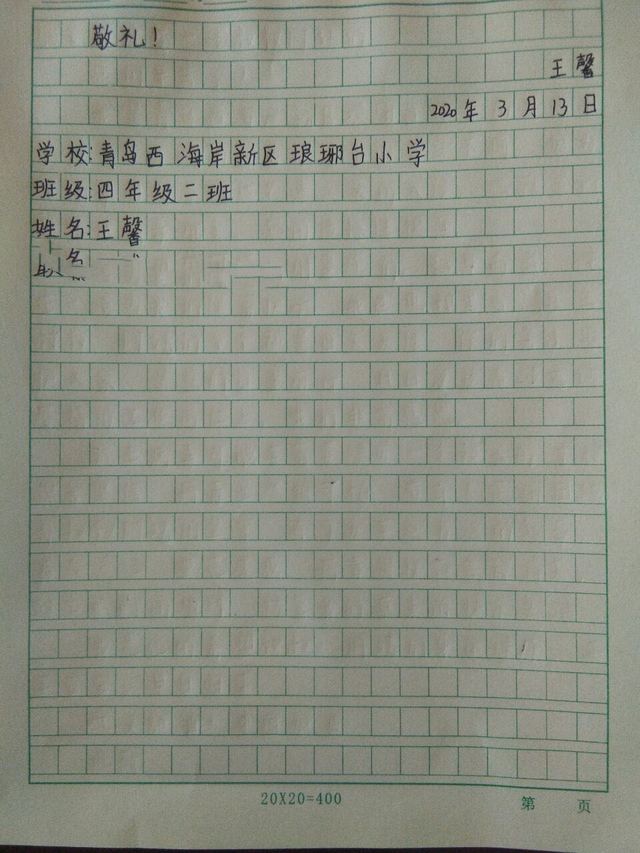 敬礼!
王馨
2020年3月13日
学校:青岛西海岸新区琅琊台小学
班级:四年级二班
姓名:王馨
20X20=400
第 页